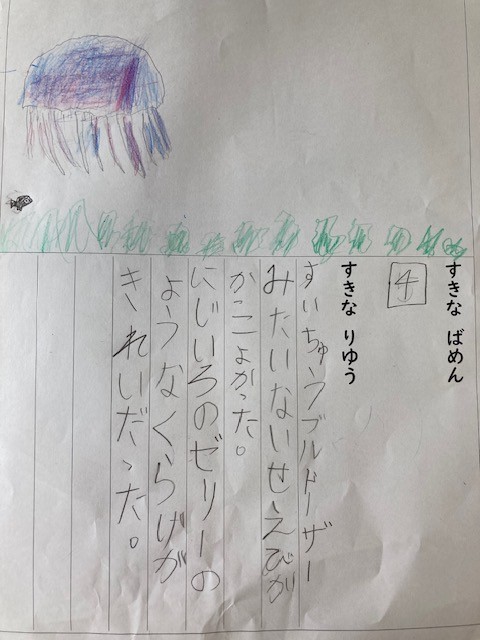 すきな ばめん
4
すきな りゆう
すいちゅうブルドーザー
みたいないせえびが
かっこよかった。
にじいろのゼリーの
ようなくらげが
きれいだった。